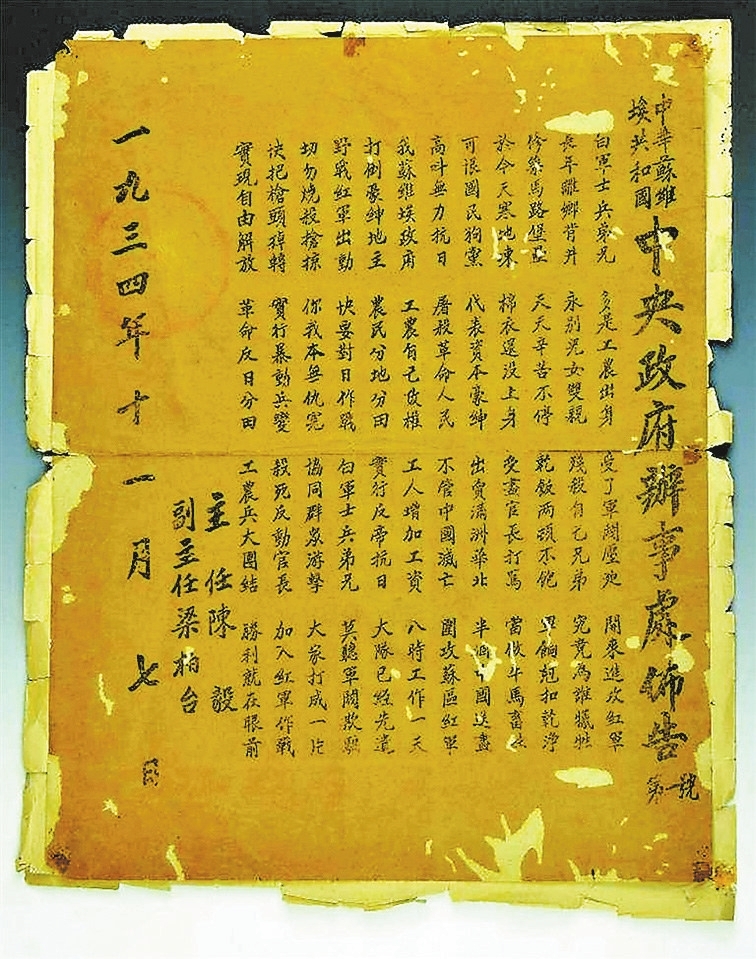 中華蘇維
埃共和國
中央政府辦事處佈告
第一號
白軍士兵弟兄 多是工農出身 受了軍閥壓廹 開來進攻紅軍
長年離鄉背井 永别兒女雙親 殘殺自己兄弟 究竟為誰犧牲
修築馬路堡壘 天天辛苦不停 乾飯两頓不飽 餉尅扣乾淨
於今天寒地凍 棉衣還没上身 受盡官長打罵 當做牛馬畜牲
可恨國民狗黨 代表資本豪紳 出賣滿洲華北 半國送盡
高叫無力抗日 屠殺革命人民 不管中國滅亡 圍攻蘇區紅軍
我蘇維埃政府 工農自己政權 工人增加工資 八時工作一天
打倒豪紳地主 農民分地分田 實行反帝抗日 大隊已經先遣
野戰紅軍出動 快要對日作戰 白軍士兵弟兄 莫聽軍閥欺騙
切勿燒殺搶掠 你我本無仇寃 協同群眾游擊 大家打成一片
快把槍頭掉轉 實行暴動兵變 殺死反動官長 加入紅軍作戰
實現自由解放 革命反日分田 工農兵大團結 勝利就在眼前
主任陳毅
副主任梁柏台
一九三四年十一月七日